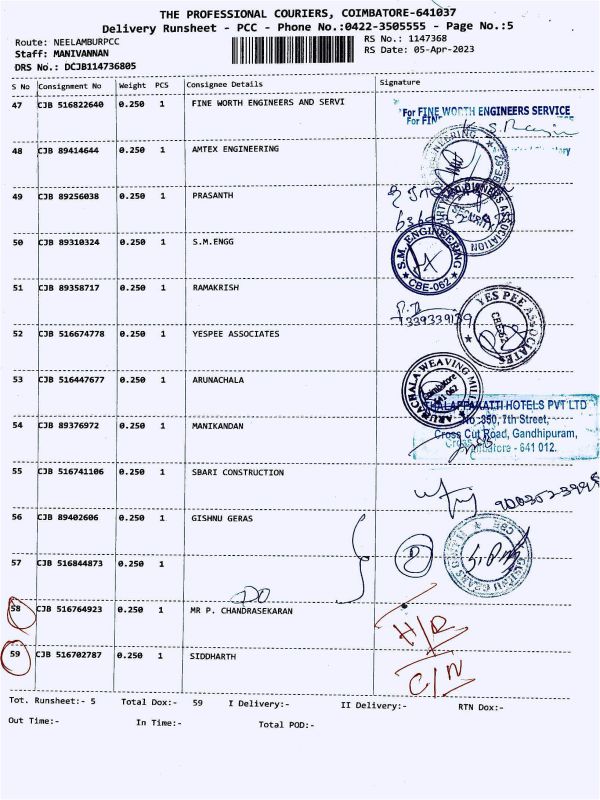 THE PROFESSIONAL COURIERS, COIMBATORE-641037
Delivery Runsheet - PCC - Phone No.:0422-3505555 - Page No.:5
Route: NEELAMBURPCC
Staff: MANIVANNAN
DRS No.: DCJB114736805
RS No.: 1147368
RS Date: 05-Apr-2023
S No Consignment No Weight PCS Consignee Details Signature
47 CJB 516822640 0.250 1 FINE WORTH ENGINEERS AND SERVI
For FINE WORTH ENGINEERS SERVICE
48 CJB 89414644 0.250 1 AMTEX ENGINEERING
49 CJB 89256038 0.250 1 PRASANTH
50 CJB 89310324 0.250 1 S.M.ENGG
S.M. ENGINEERING
CBE-062
51 CJB 89358717 0.250 1 RAMAKRISH
52 CJB 516674778 0.250 1 YESPEE ASSOCIATES
YES PEE ASSOCIATES
53 CJB 516447677 0.250 1 ARUNACHALA
ARUNACHALA WEAVING MILL
54 CJB 89376972 0.250 1 MANIKANDAN
THALAPPAKATTI HOTELS PVT LTD
No :350, 7th Street,
Cross Cut Road, Gandhipuram,
Coimbatore - 641 012.
55 CJB 516741106 0.250 1 SBARI CONSTRUCTION
56 CJB 89402606 0.250 1 GISHNU GERAS
57 CJB 516844873 0.250 1
58 CJB 516764923 0.250 1 MR P. CHANDRASEKARAN
H/R
59 CJB 516702787 0.250 1 SIDDHARTH
C/N
Tot. Runsheet:- 5 Total Dox:- 59 I Delivery:- II Delivery:- RTN Dox:-
Out Time:- In Time:- Total POD:-